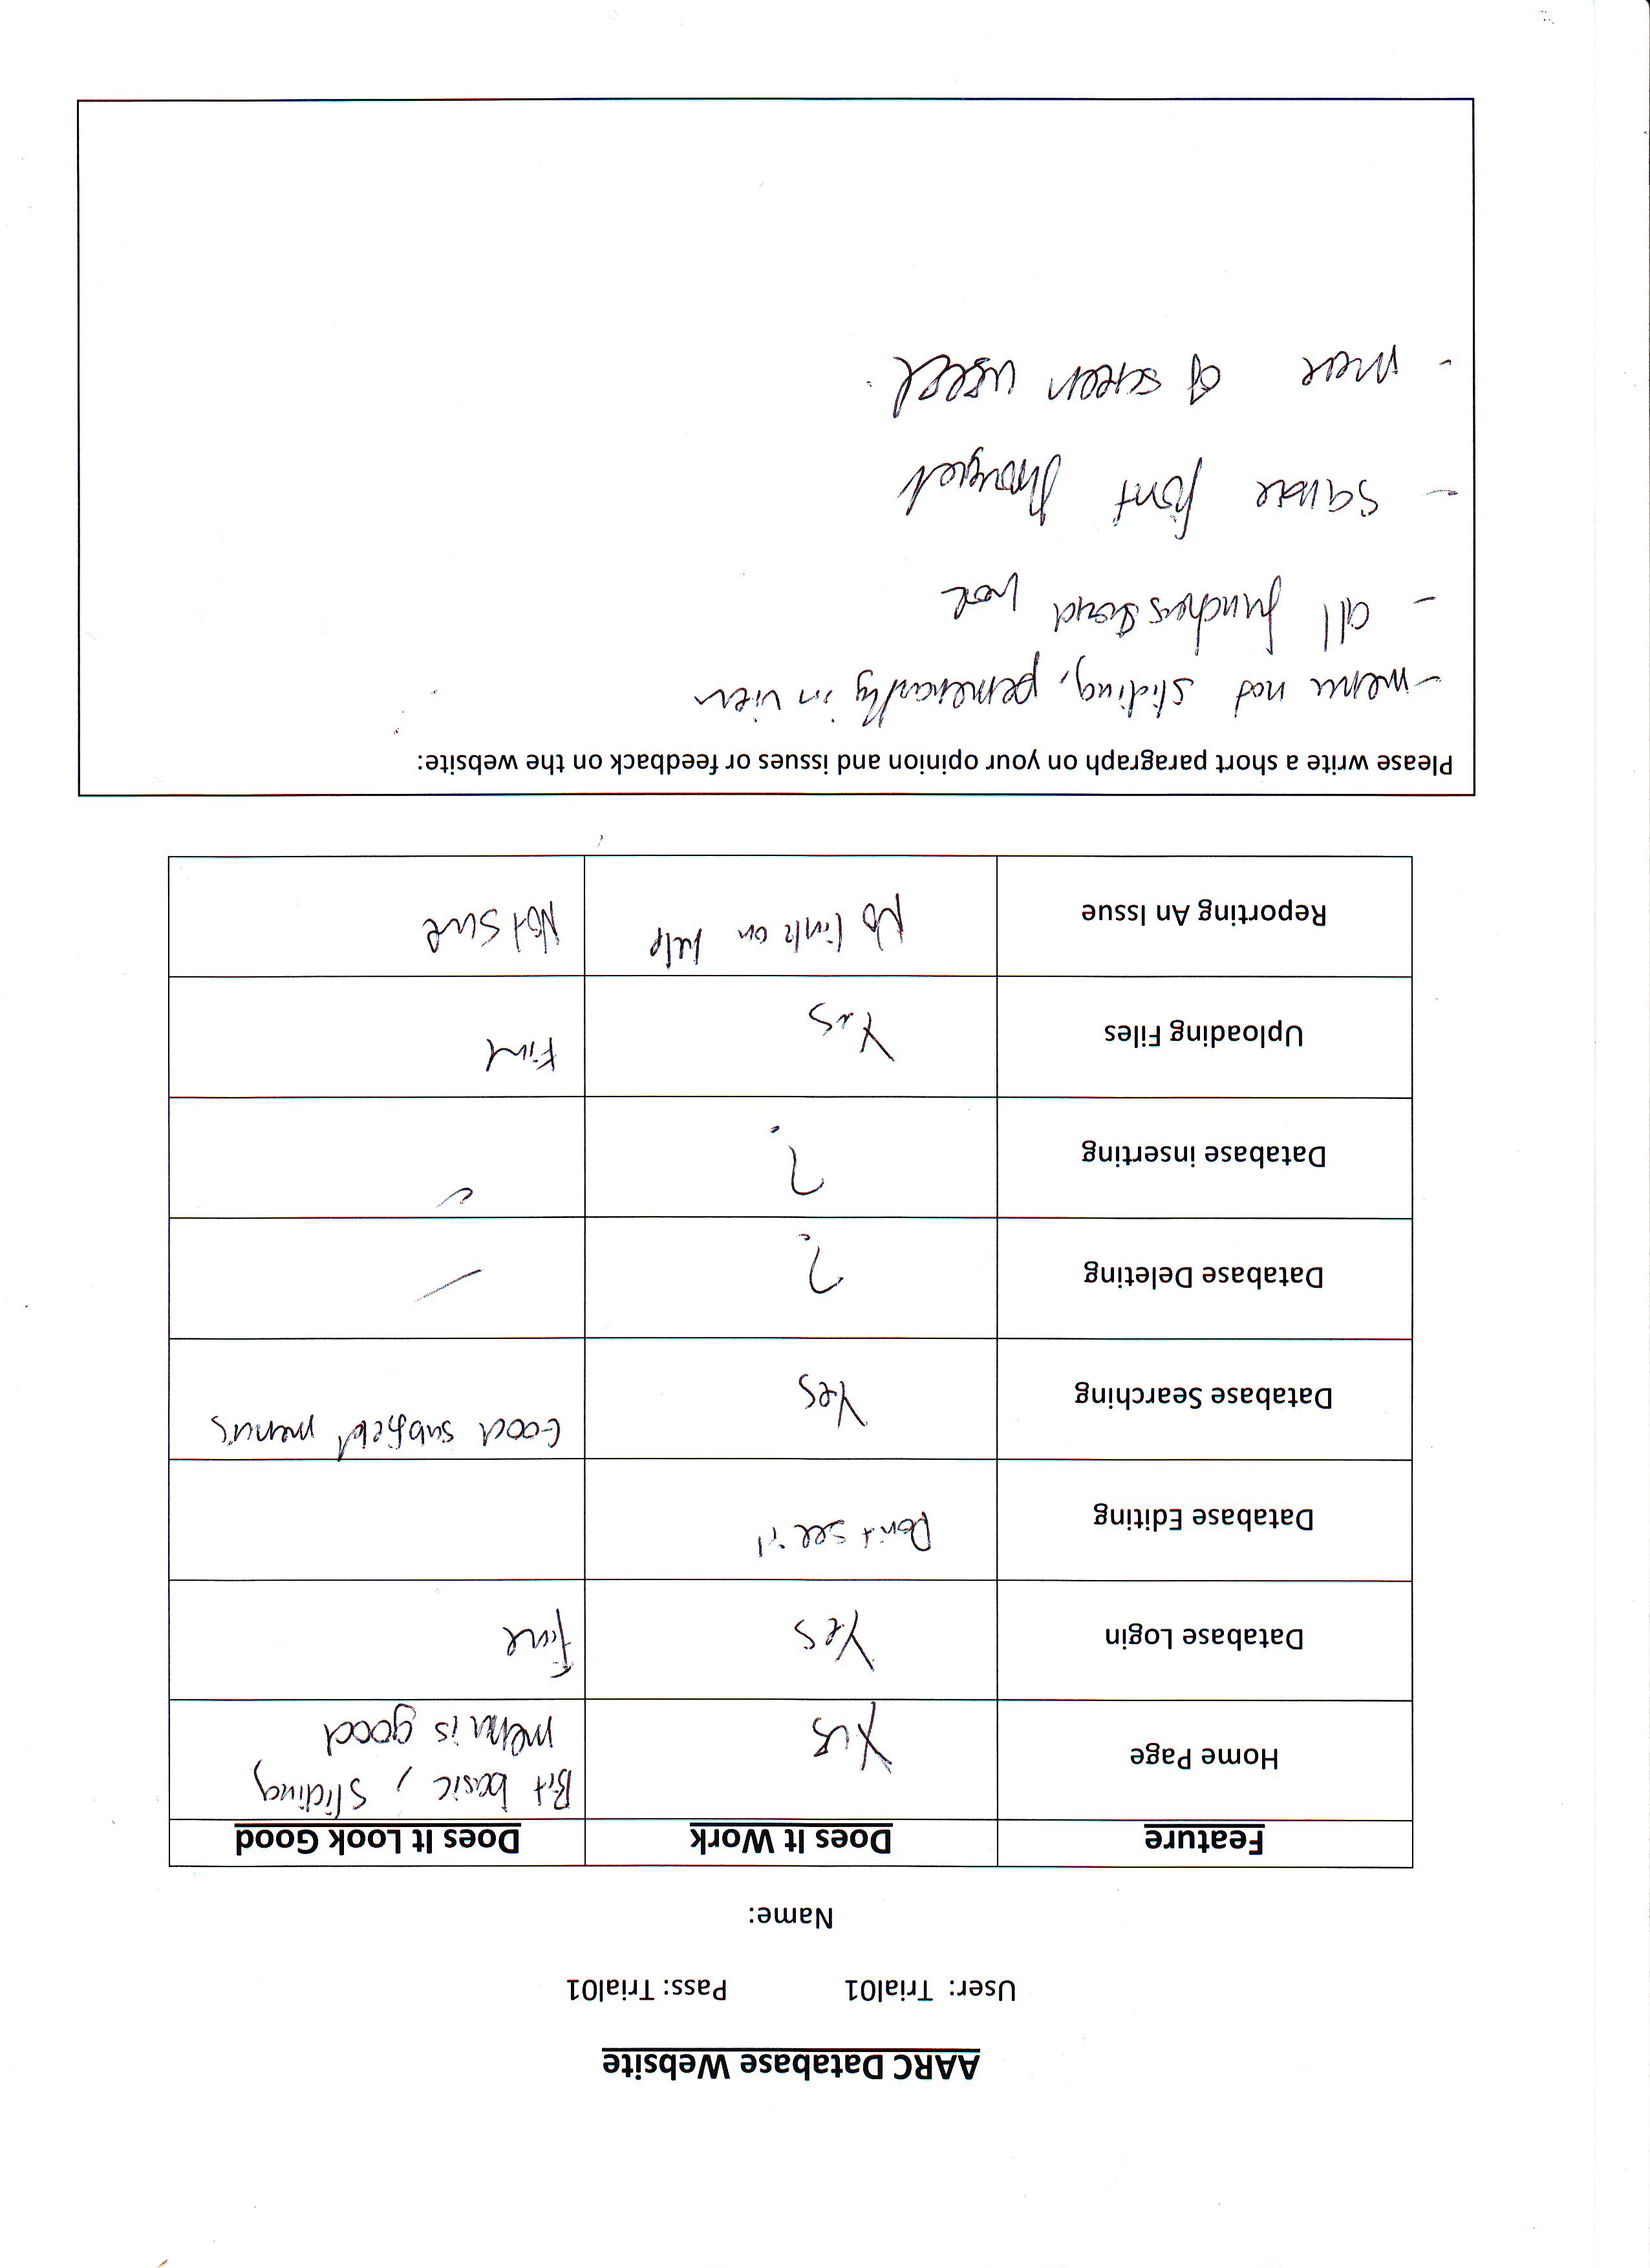 AARC Database Website
User: Trial01 Pass: Trial01
Name:
Feature Does It Work Does It Look Good
Home Page Yes Bit basic, sliding
menu is good
Database Login Yes fine
Database Editing Don't see it
Database Searching Yes Good subfield menus
Database Deleting ? —
Database inserting ?
Uploading Files Yes Fine
Reporting An Issue No link on help Not sure
Please write a short paragraph on your opinion and issues or feedback on the website:
- menu not sliding, permenantly in view
- all functions
- square font
- more of screen used.